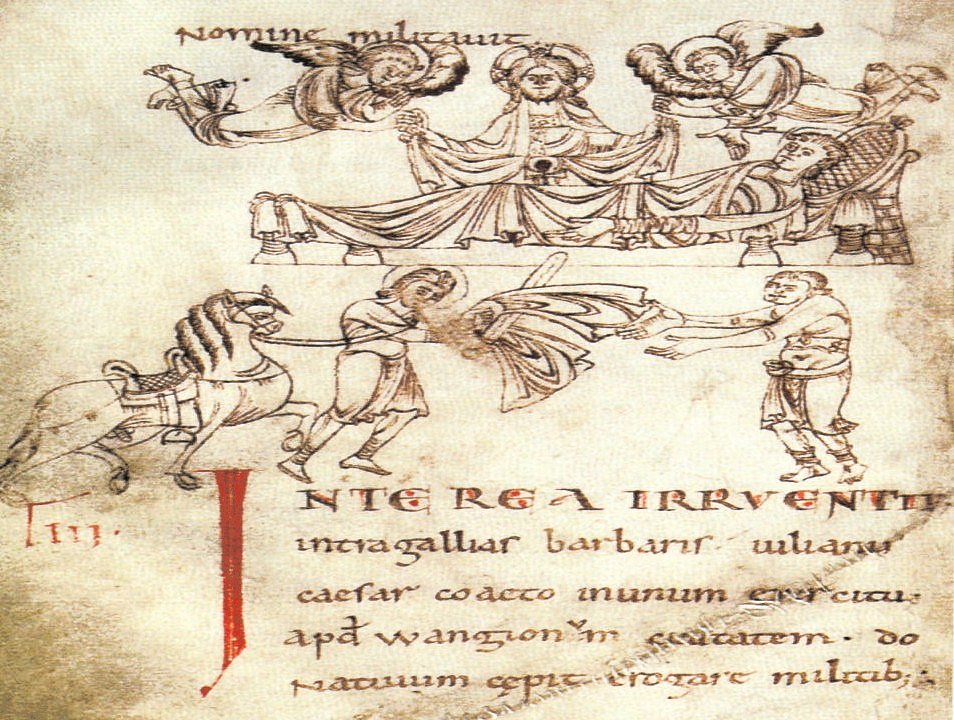 Nomine militavit.
INTEREA IRRVENTIB
IIII.
intra gallias barbaris. iulianus
caesar coacto in unum exercitu.
apđ wangionum civitatem. do
Nativum cepit erogare militib;